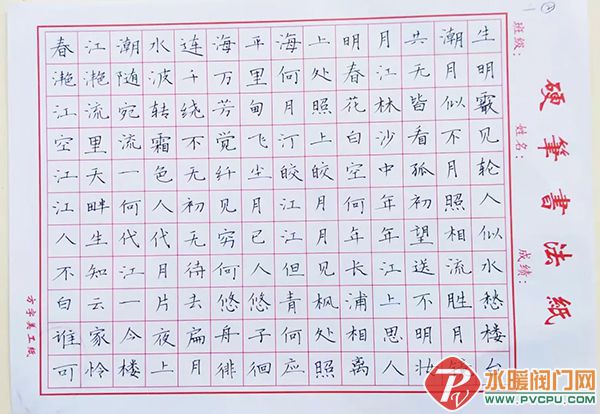 春江潮水连海平海上明月共潮生
滟滟随波千万里何处春江无月明
江流宛转绕芳甸月照花林皆似霰
空里流霜不觉飞汀上白沙看不见
江天一色无纤尘皎皎空中孤月轮
江畔何人初见月江月何年初照人
人生代代无穷已江月年年望相似
不知江月待何人但见长江送流水
白云一片去悠悠青枫浦上不胜愁
谁家今夜扁舟子何处相思明月楼
可怜楼上月徘徊应照离人妆台
班级： 姓名： 成绩：
硬筆書法紙
方字美工纸
水暖阀门网
WWW.PVCPU.COM